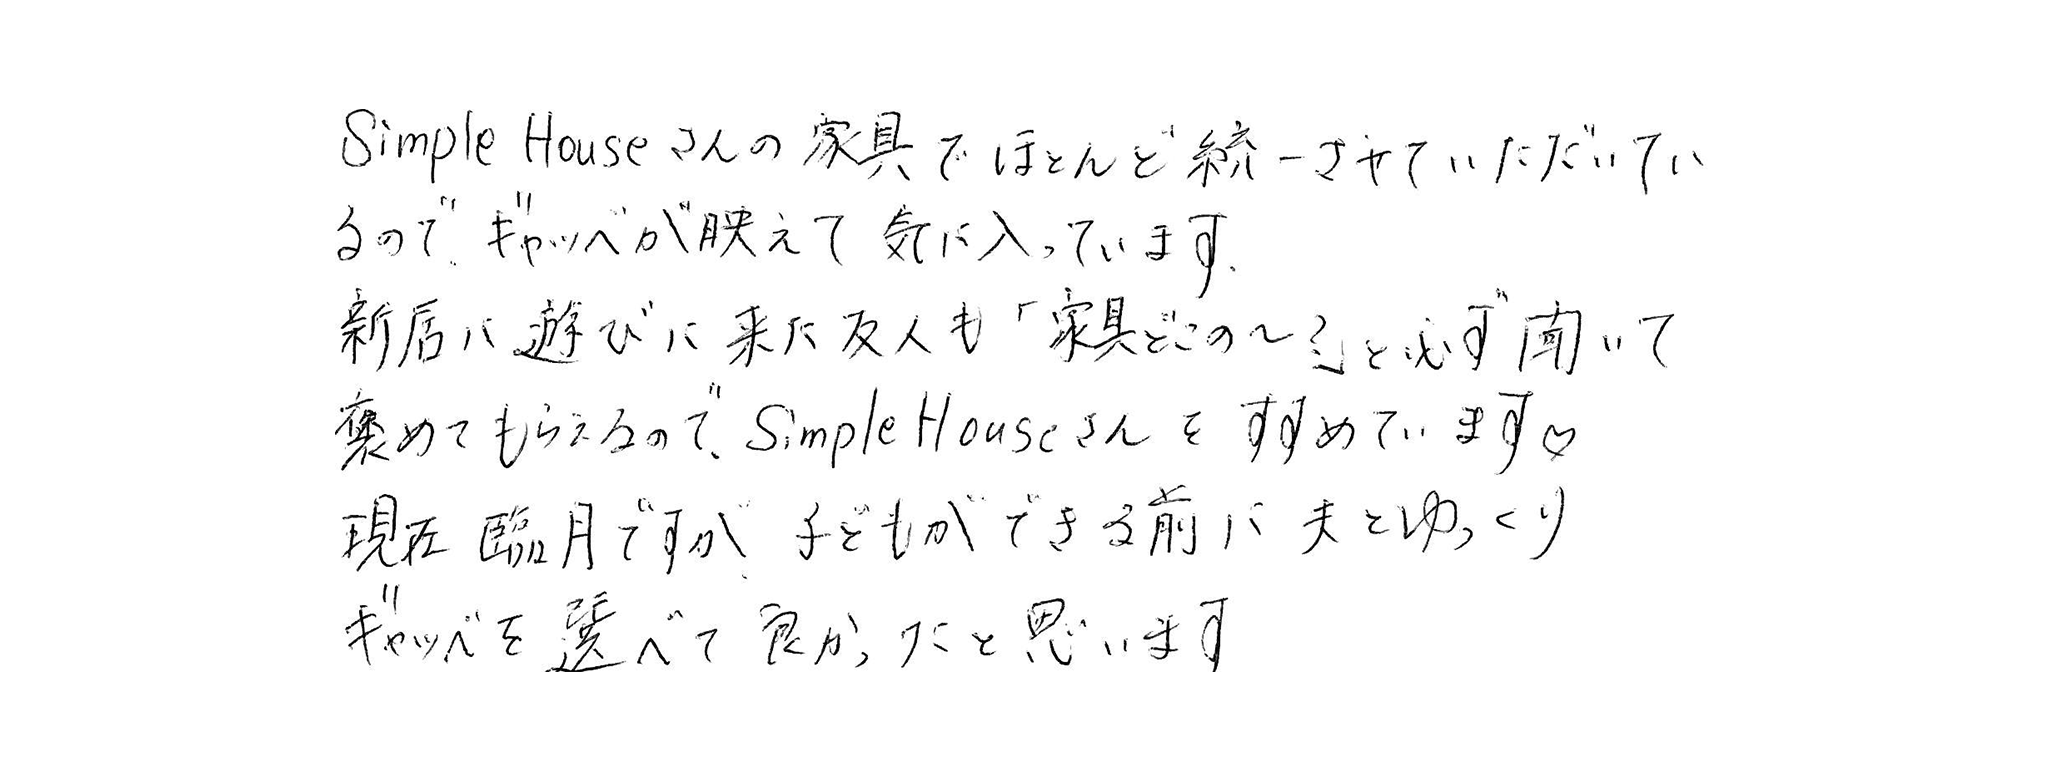 Simple Houseさんの家具でほとんど統一させていただいてい
るので、ギャッベが映えて気に入っています。
新居に遊びに来た友人も「家具どこの〜?」と必ず聞いて
褒めてもらえるので、Simple Houseさんをすすめています♡
現在臨月ですが、子どもができる前に夫とゆっくり
ギャッベを選べて良かったと思います